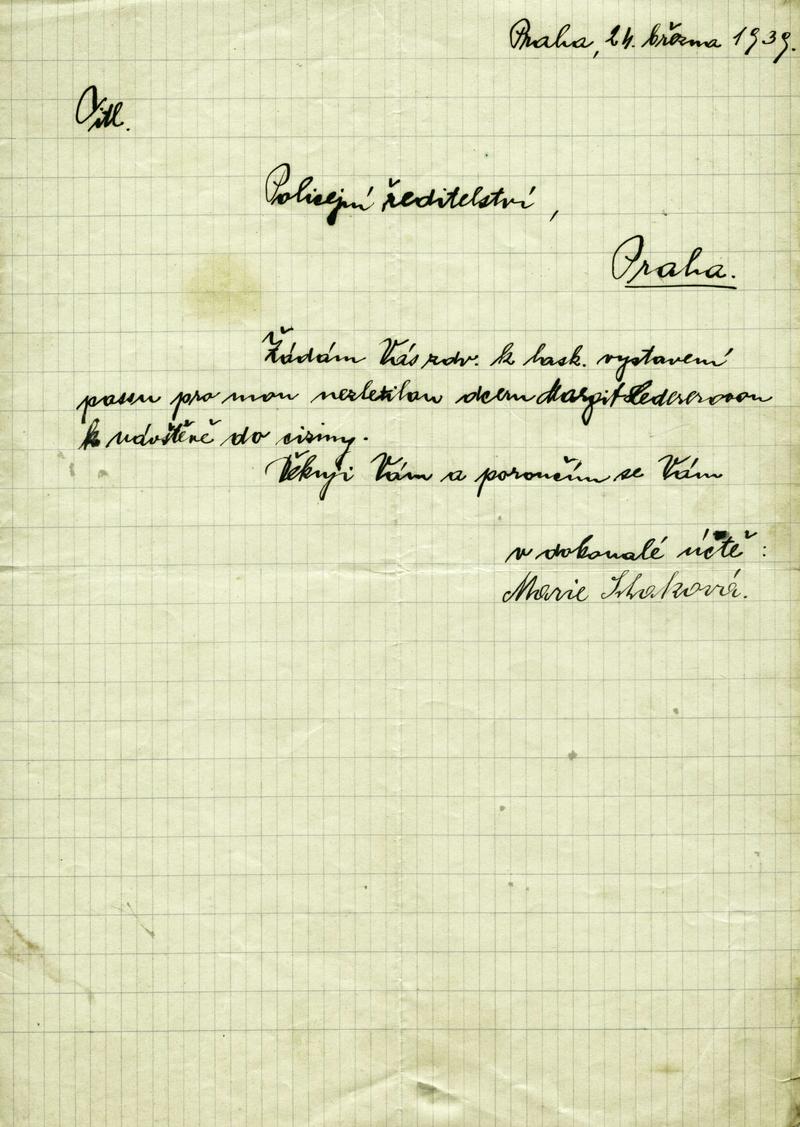 Praha, 24. března 1939.
Titl.
Policejní ředitelství,
Praha.
Žádám Vás zdv. k lask. vystavení
passu pro mou nezletilou dceru Margit Ledererovou
k návštěvě do ciziny.
Děkuji Vám a poroučím se Vám
v dokonalé úctě:
Marie